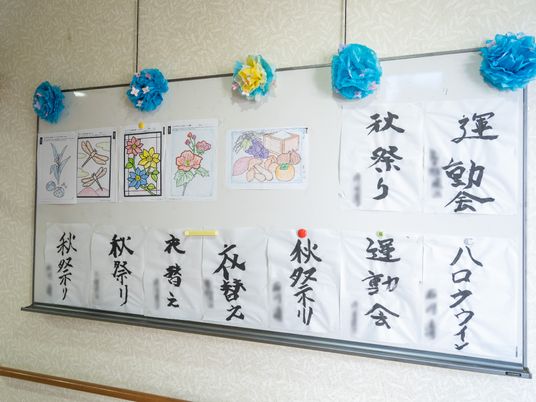 秋祭り
運動会
秋祭り
秋祭り
衣替え
衣替え
秋祭り
運動会
ハロウウイン